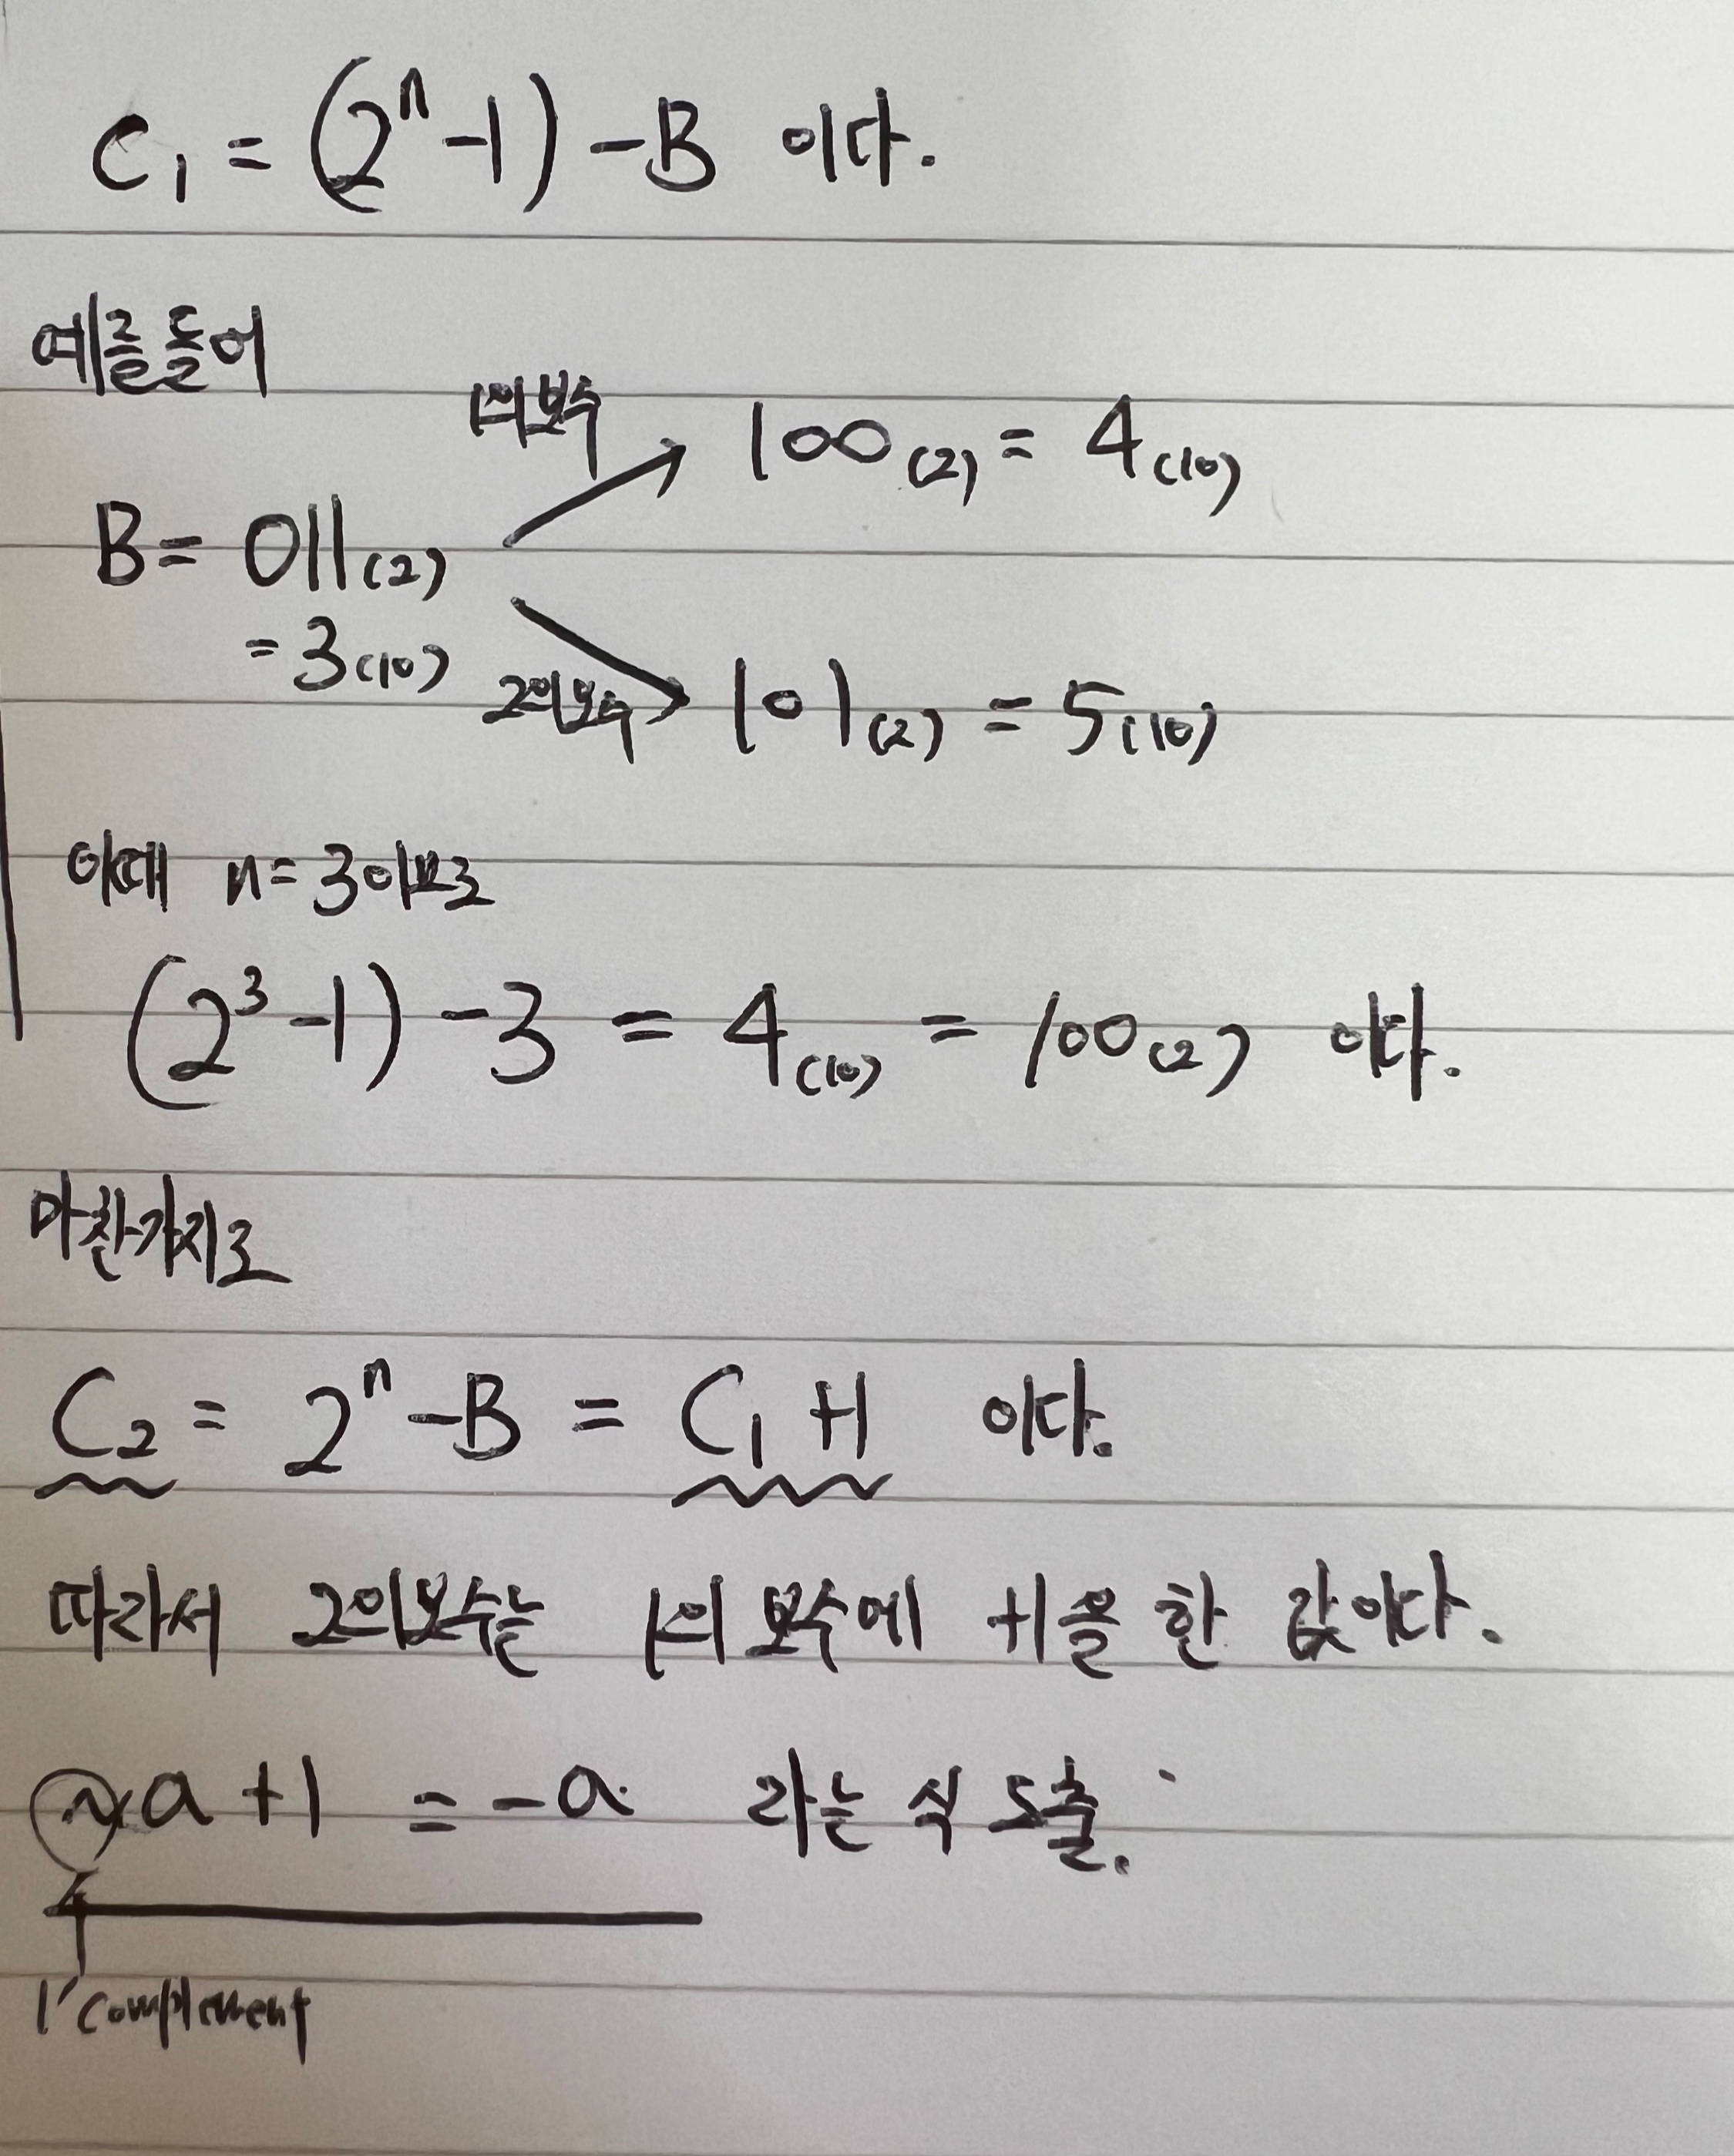 C₁ = (2ⁿ-1) -B 이다.
예를들어
1의보수
100(2) = 4(10)
B= 011(2)
= 3(10)
2의보수
101(2) = 5(10)
이때 n=3이므로
(2³-1) -3 = 4(10) = 100(2) 이다.
마찬가지로
C₂ = 2ⁿ-B = C₁+1 이다.
따라서 2의보수는 1의 보수에 +1을 한 값이다.
~a +1 = -a 라는 식 도출.
1' complement